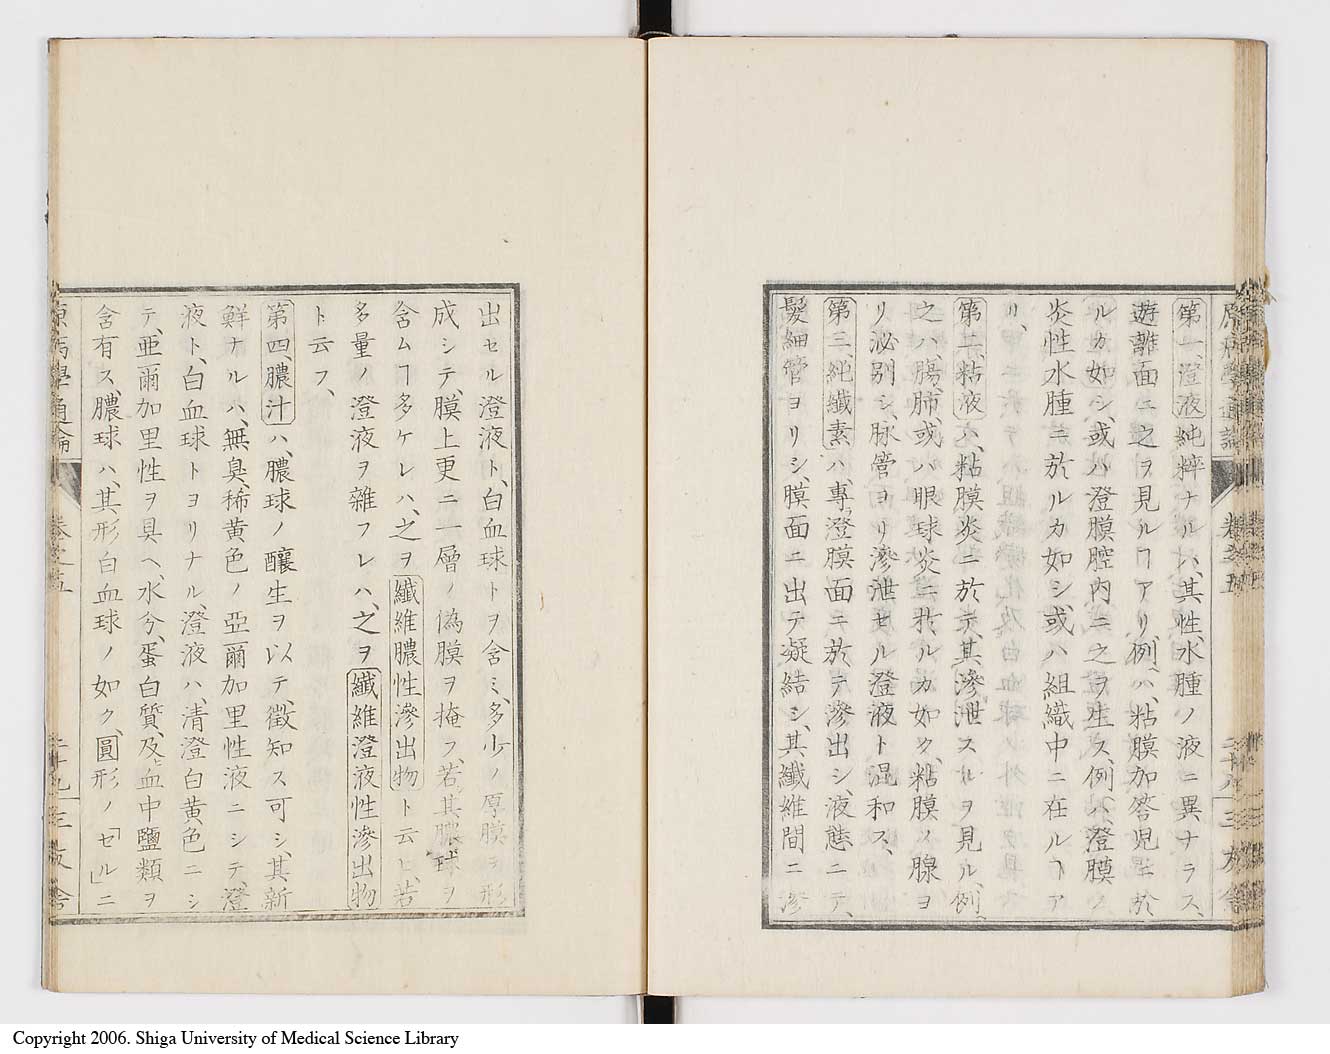 原病學通論 卷之五 二十八 三友舍
第一、澄液純粹ナルハ、其性、水腫ノ液ニ異ナラス、
遊離面ニ之ヲ見ルヿアリ、例ハ、粘膜加答兒ニ於
ルカ如シ、或ハ澄膜腔内ニ之ヲ生ス、例ハ、澄膜ノ
炎性水腫ニ於ルカ如シ、或ハ組織中ニ在ルヿア
リ、
第二、粘液ハ、粘膜炎ニ於テ、其滲泄スルヲ見ル、例
之ハ、腸、肺、或ハ眼球炎ニ於ルカ如ク、粘膜ノ腺ヨ
リ泌別シ、脉管ヨリ滲泄セル澄液ト混和ス、
第三、純纎素ハ、專ラ澄膜面ニ於テ滲出シ、液態ニテ、
髮細管ヨリシ、膜面ニ出テ凝結シ、其纎維間ニ滲
出セル澄液ト、白血球トヲ含ミ、多少ノ厚膜ヲ形
成シテ、膜上更ニ一層ノ偽膜ヲ掩フ、若其膿球ヲ
含ムヿ多ケレハ、之ヲ纎維膿性滲出物ト云ヒ、若
多量ノ澄液ヲ雜フレハ、之ヲ纎維澄液性滲出物
ト云フ、
第四、膿汁ハ、膿球ノ釀生ヲ以テ徵知ス可シ、其新
鮮ナルハ、無臭稀黄色ノ亞爾加里性液ニシテ、澄
液ト、白血球トヨリナル、澄液ハ、清澄白黄色ニシ
テ、亜爾加里性ヲ具ヘ、水分、蛋白質、及ヒ血中鹽類ヲ
含有ス、膿球ハ、其形白血球ノ如ク、圓形ノ「セル」ニ
原病學通論 卷之五 二十九 三友舍
Copyright 2006. Shiga University of Medical Science Library